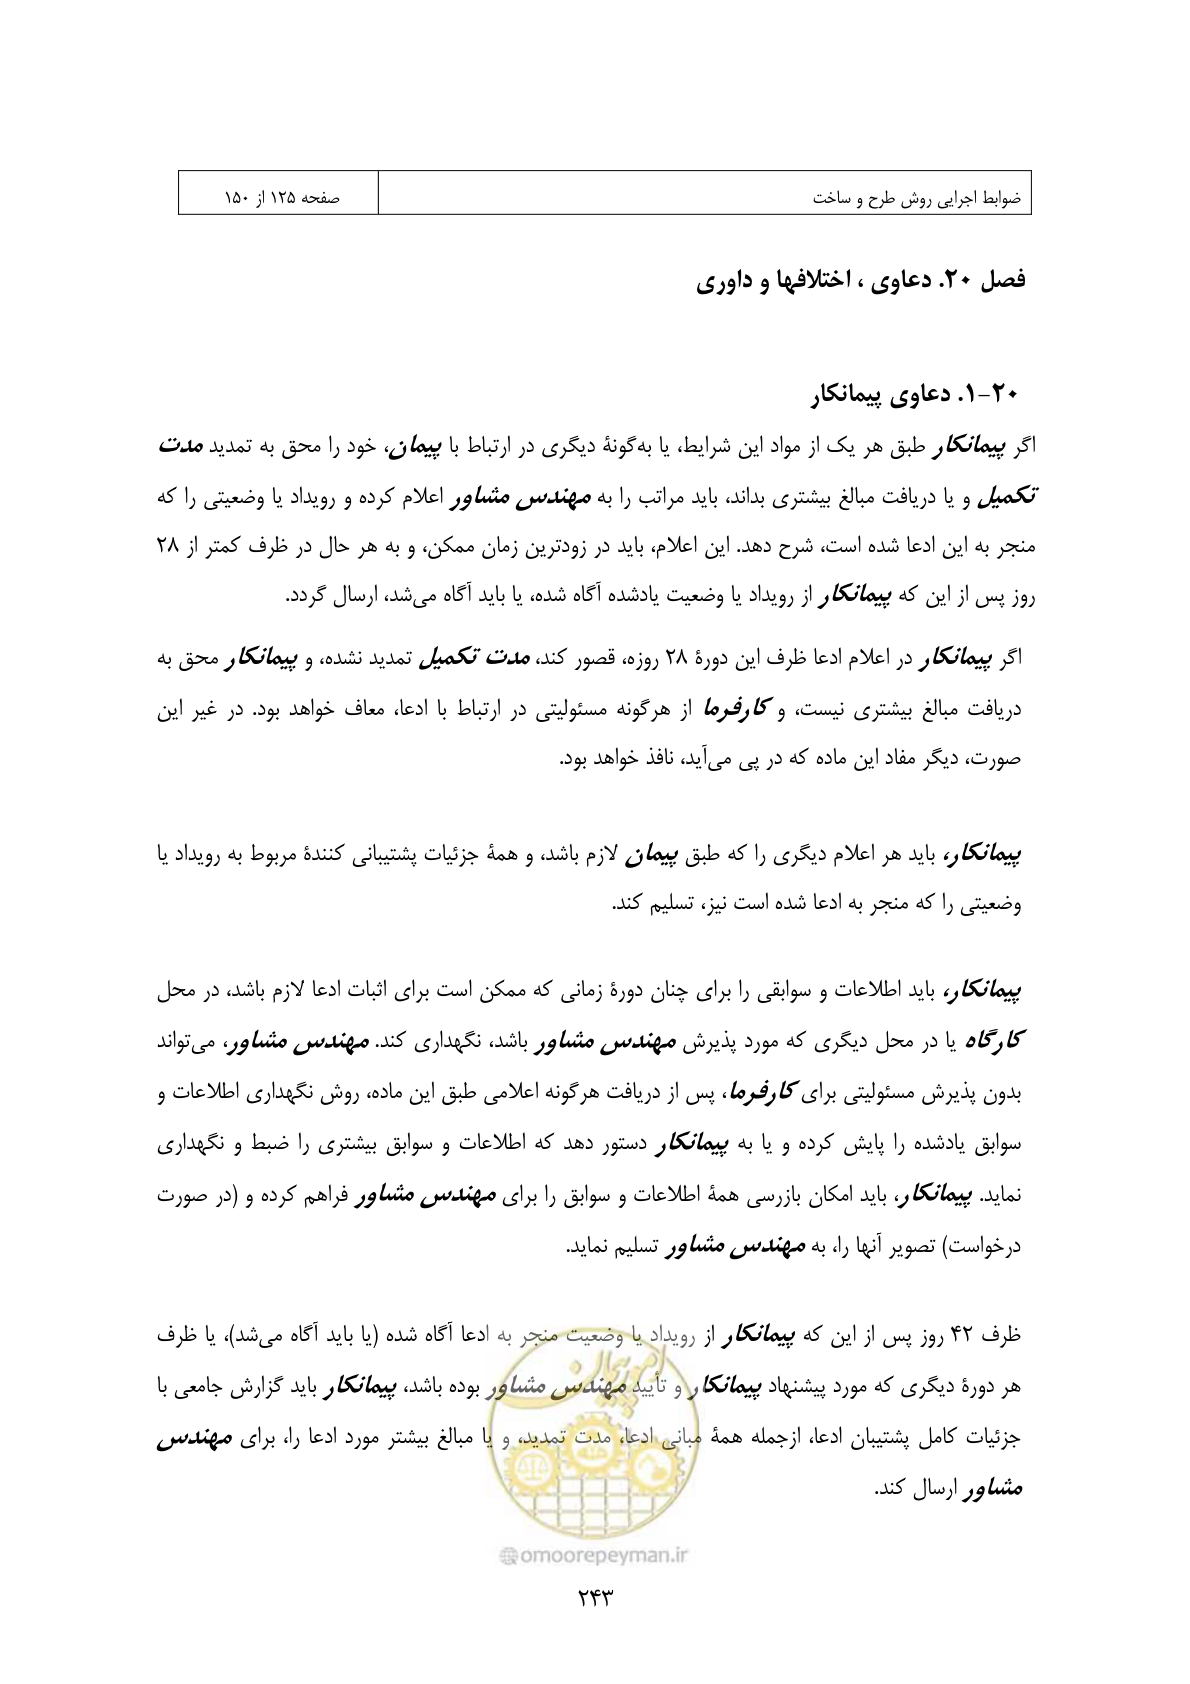 ضوابط اجرایی روش طرح و ساخت
صفحه ۱۲۵ از ۱۵۰
فصل ۲۰. دعاوی ، اختلافها و داوری
۲۰-۱. دعاوی پیمانکار
اگر پیمانکار طبق هر یک از مواد این شرایط، یا به‌گونهٔ دیگری در ارتباط با پیمان، خود را محق به تمدید مدت
تکمیل و یا دریافت مبالغ بیشتری بداند، باید مراتب را به مهندس مشاور اعلام کرده و رویداد یا وضعیتی را که
منجر به این ادعا شده است، شرح دهد. این اعلام، باید در زودترین زمان ممکن، و به هر حال در ظرف کمتر از ۲۸
روز پس از این که پیمانکار از رویداد یا وضعیت یادشده آگاه شده، یا باید آگاه می‌شد، ارسال گردد.
اگر پیمانکار در اعلام ادعا ظرف این دورهٔ ۲۸ روزه، قصور کند، مدت تکمیل تمدید نشده، و پیمانکار محق به
دریافت مبالغ بیشتری نیست، و کارفرما از هرگونه مسئولیتی در ارتباط با ادعا، معاف خواهد بود. در غیر این
صورت، دیگر مفاد این ماده که در پی می‌آید، نافذ خواهد بود.
پیمانکار، باید هر اعلام دیگری را که طبق پیمان لازم باشد، و همهٔ جزئیات پشتیبانی کنندهٔ مربوط به رویداد یا
وضعیتی را که منجر به ادعا شده است نیز، تسلیم کند.
پیمانکار، باید اطلاعات و سوابقی را برای چنان دورهٔ زمانی که ممکن است برای اثبات ادعا لازم باشد، در محل
کارگاه یا در محل دیگری که مورد پذیرش مهندس مشاور باشد، نگهداری کند. مهندس مشاور، می‌تواند
بدون پذیرش مسئولیتی برای کارفرما، پس از دریافت هرگونه اعلامی طبق این ماده، روش نگهداری اطلاعات و
سوابق یادشده را پایش کرده و یا به پیمانکار دستور دهد که اطلاعات و سوابق بیشتری را ضبط و نگهداری
نماید. پیمانکار، باید امکان بازرسی همهٔ اطلاعات و سوابق را برای مهندس مشاور فراهم کرده و (در صورت
درخواست) تصویر آنها را، به مهندس مشاور تسلیم نماید.
ظرف ۴۲ روز پس از این که پیمانکار از رویداد یا وضعیت منجر به ادعا آگاه شده (یا باید آگاه می‌شد)، یا ظرف
هر دورهٔ دیگری که مورد پیشنهاد پیمانکار و تأیید مهندس مشاور بوده باشد، پیمانکار باید گزارش جامعی با
جزئیات کامل پشتیبان ادعا، ازجمله همهٔ مبانی ادعا، مدت تمدید، و یا مبالغ بیشتر مورد ادعا را، برای مهندس
مشاور ارسال کند.
امور پیمان
@omoorepeyman.ir
۲۴۳